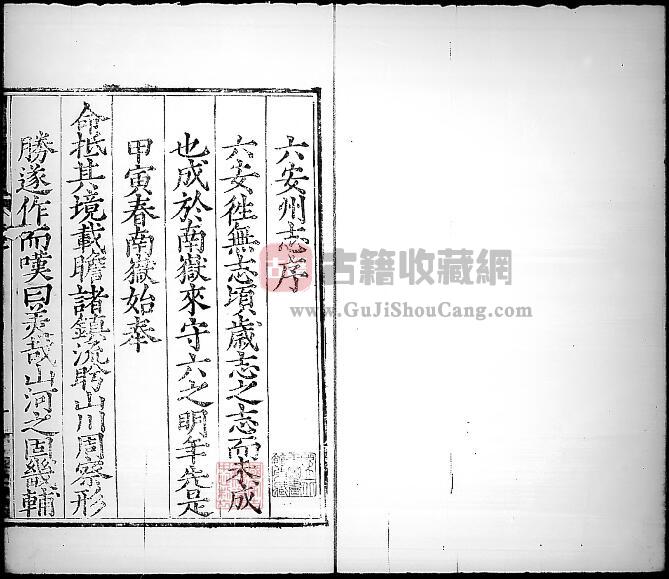 六安州志序
六安徃無志頃歲志之志而未成
也成於南嶽來守六之明年先是
甲寅春南嶽始奉
命抵其境載瞻諸鎮流盻山川周察形
勝遂作而嘆曰美哉山河之固畿輔
古籍收藏网
www.GuJiShouCang.com